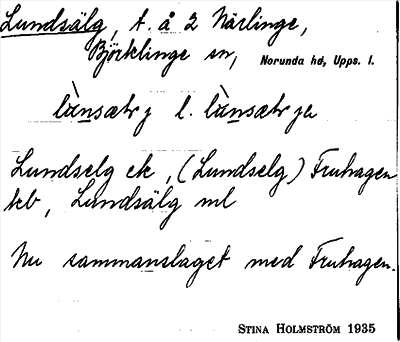 Lundsälg, t. å 2 Närlinge,
Björklinge sn, Norunda hd, Upps. l.
lànsætrj l. lànsætrja
Lundselg ek, (Lundselg) Fruhagen
kb, Lundsälg ml
Nu sammanslaget med Fruhagen.
STINA HOLMSTRÖM 1935